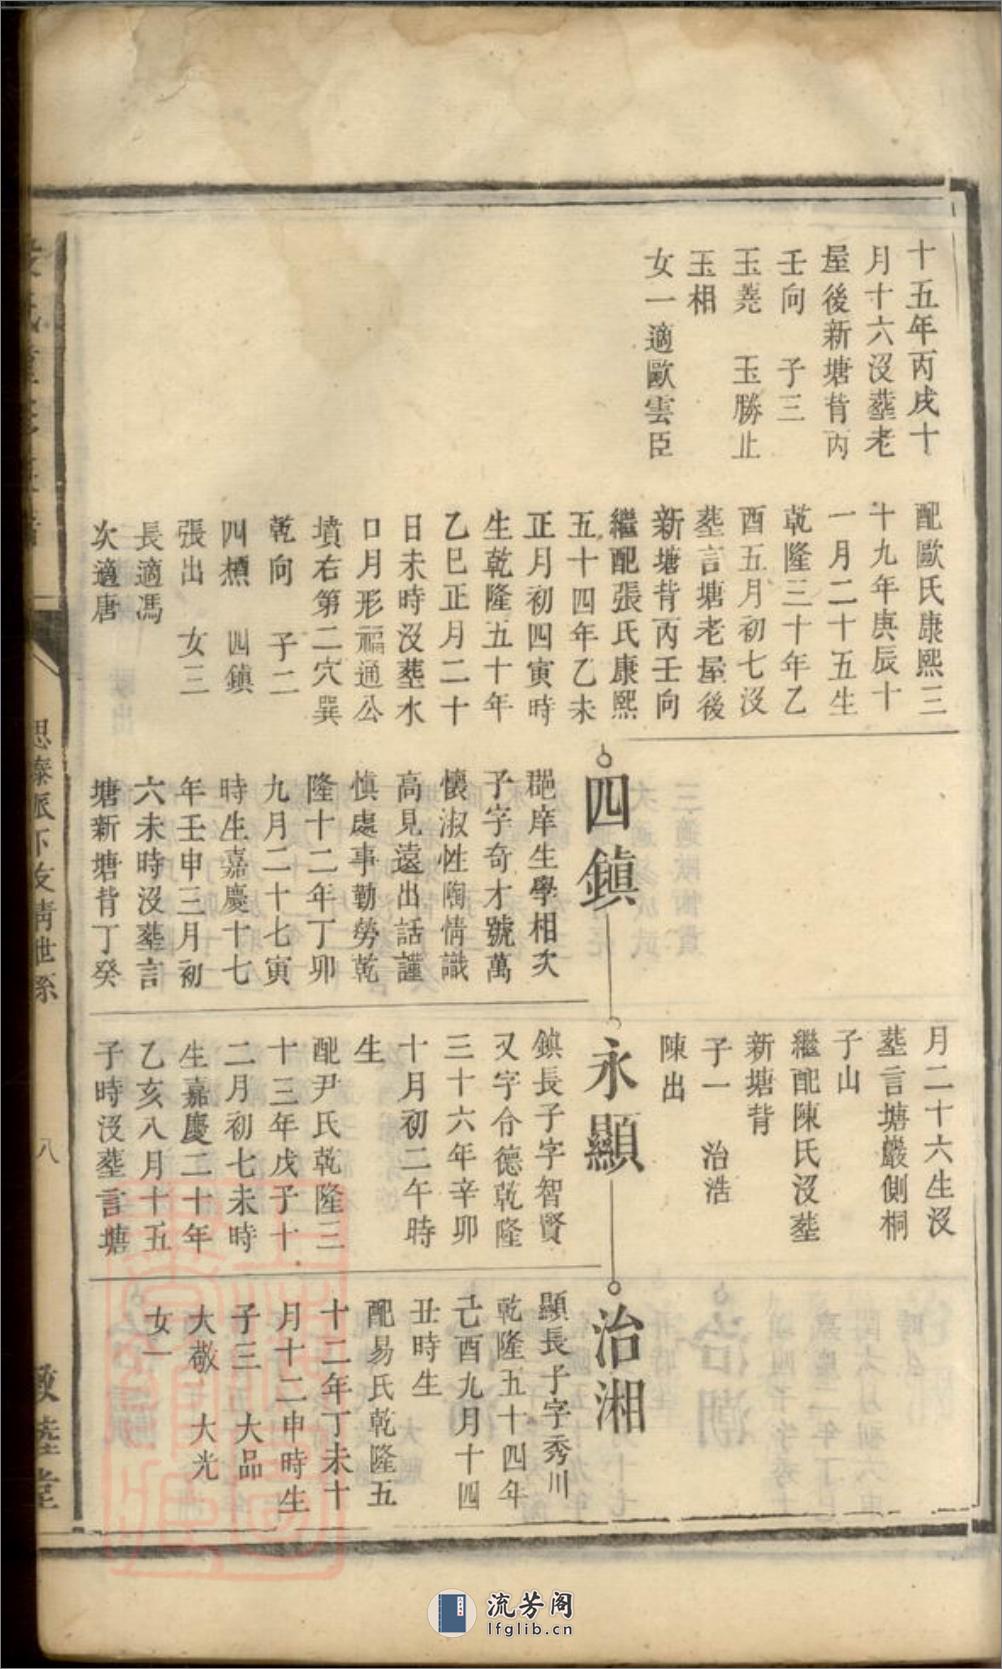 十五年丙戌十
月十六沒塟老
屋後新塘背丙
壬向　子三
玉蕘　玉勝止
玉相
女一適歐雲臣
配歐氏康熙三
十九年庚辰十
一月二十五生
乾隆三十年乙
酉五月初七沒
塟言塘老屋後
新塘背丙壬向
繼配張氏康熙
五十四年乙未
正月初四寅時
生乾隆五十年
乙巳正月二十
日未時沒塟水
口月形福通公
墳右第二穴巽
乾向　子二
四標　四鎮
張出　女三
長適馮
次適唐
四鎮
郡庠生學相次
子字奇才號萬
懷淑性陶情識
高見遠出話謹
慎處事勤勞乾
隆十二年丁卯
九月二十七寅
時生嘉慶十七
年壬申三月初
六未時沒塟言
塘新塘背丁癸
月二十六生沒
塟言塘嚴側桐
子山
繼配陳氏沒塟
新塘背
子一　治浩
陳出
永顯
鎮長子字智賢
又字合德乾隆
三十六年辛卯
十月初二午時
生
配尹氏乾隆三
十三年戊子十
二月初七未時
生嘉慶二十年
乙亥八月十五
子時沒塟言塘
治湘
顯長子字秀川
乾隆五十四年
己酉九月十四
丑時生
配易氏乾隆五
十二年丁未十
月十二申時生
子三　大品
大敬　大光
女一
思泰派下友清世系
八
敦睦堂
流芳阁
lfglib.cn